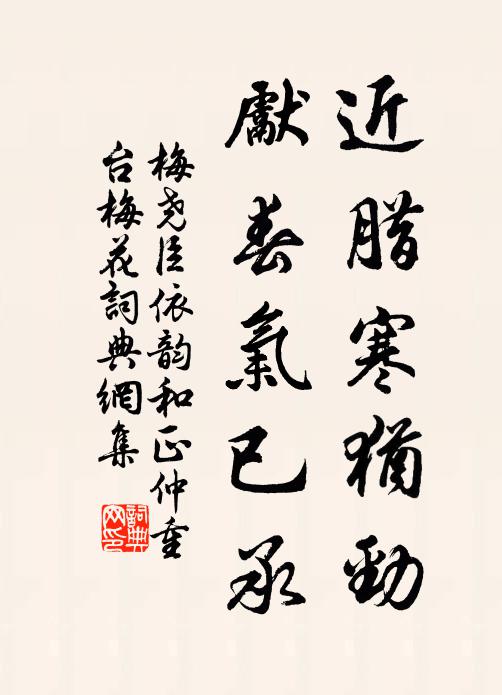 近腊寒猶勁
獻春氣已承
梅尧臣依韵和正仲重
台梅花詞典網集
詞典网印